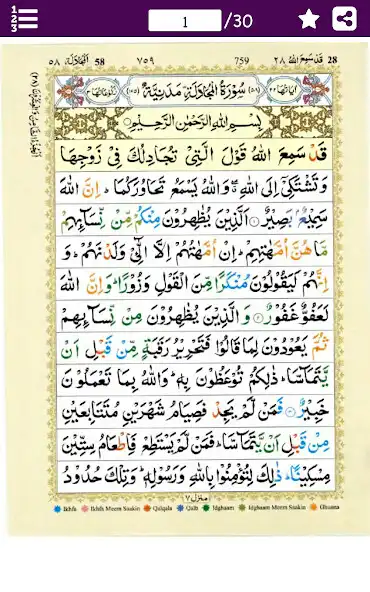 1 /30
٥٨ اَلْمُجَادَلَة 58 ٧٥٩ 759 قَدْ سَمِعَ اللّٰهُ ٢٨ 28
سُوْرَةُ الْمُجَادَلَةِ مَدَنِيَّةٌ
بِسْمِ اللّٰهِ الرَّحْمٰنِ الرَّحِيْمِ
قَدْ سَمِعَ اللّٰهُ قَوْلَ الَّتِيْ تُجَادِلُكَ فِيْ زَوْجِهَا
وَتَشْتَكِيْۤ اِلَى اللّٰهِ ۖۗ وَاللّٰهُ يَسْمَعُ تَحَاوُرَكُمَا ؕ اِنَّ اللّٰهَ
سَمِيْعٌۢ بَصِيْرٌ ۝۱ اَلَّذِيْنَ يُظٰهِرُوْنَ مِنْكُمْ مِّنْ نِّسَآىِٕهِمْ
مَّا هُنَّ اُمَّهٰتِهِمْ ؕ اِنْ اُمَّهٰتُهُمْ اِلَّا الّٰٓـِٔيْ وَلَدْنَهُمْ ؕ وَ
اِنَّهُمْ لَيَقُوْلُوْنَ مُنْكَرًا مِّنَ الْقَوْلِ وَزُوْرًا ؕ وَاِنَّ اللّٰهَ
لَعَفُوٌّ غَفُوْرٌ ۝۲ وَالَّذِيْنَ يُظٰهِرُوْنَ مِنْ نِّسَآىِٕهِمْ
ثُمَّ يَعُوْدُوْنَ لِمَا قَالُوْا فَتَحْرِيْرُ رَقَبَةٍ مِّنْ قَبْلِ اَنْ
يَّتَمَآسَّا ؕ ذٰلِكُمْ تُوْعَظُوْنَ بِهٖ ؕ وَاللّٰهُ بِمَا تَعْمَلُوْنَ
خَبِيْرٌ ۝۳ فَمَنْ لَّمْ يَجِدْ فَصِيَامُ شَهْرَيْنِ مُتَتَابِعَيْنِ
مِنْ قَبْلِ اَنْ يَّتَمَآسَّا ۚ فَمَنْ لَّمْ يَسْتَطِعْ فَاِطْعَامُ سِتِّيْنَ
مِسْكِيْنًا ؕ ذٰلِكَ لِتُؤْمِنُوْا بِاللّٰهِ وَرَسُوْلِهٖ ؕ وَتِلْكَ حُدُوْدُ
منزل ٧
Ikhfa Ikhfa Meem Saakin Qalqala Qalb Idghaam Idghaam Meem Saakin Ghunna